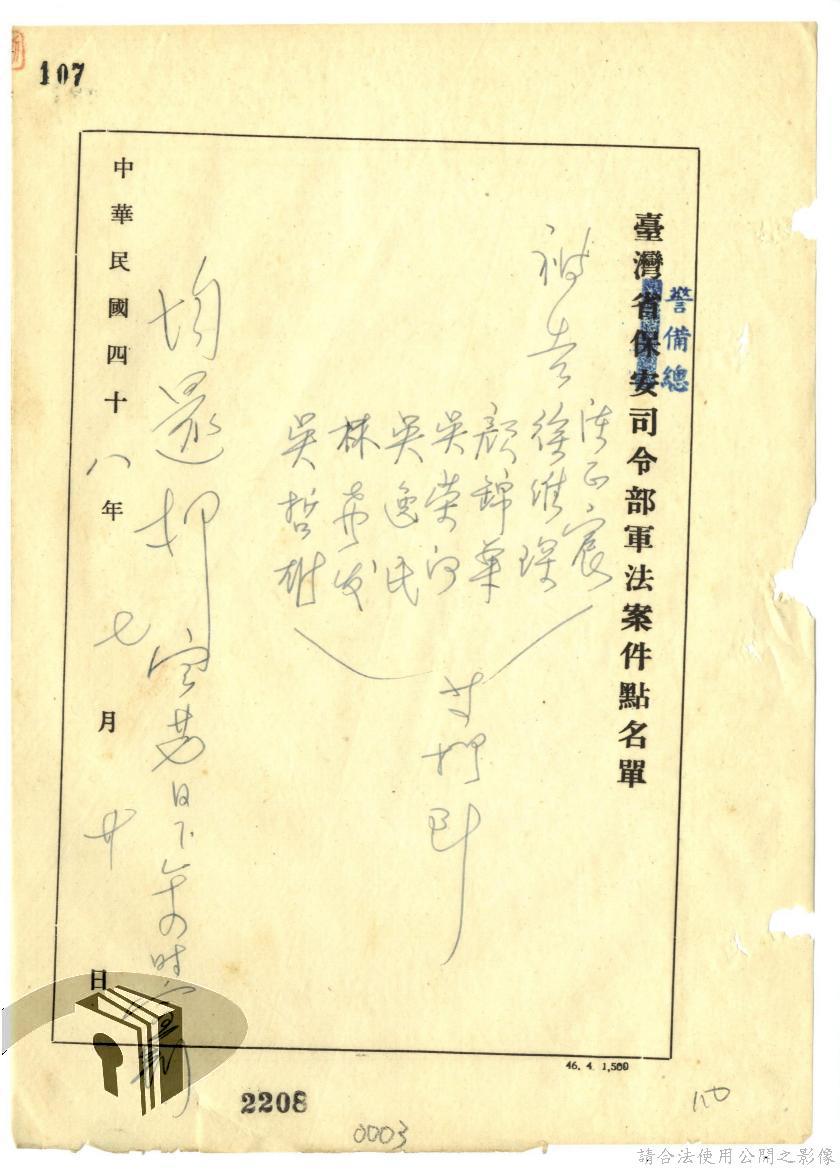 107
臺灣省保安司令部軍法案件點名單
警備總
被告
陳正宸
徐維琛
顏錦華
吳榮河
吳逸民
林香发
吳哲雄
在押到
均還押
日下午
時
中華民國四十八年七月廿日
46. 4. 1,500
2208
0003
110
請合法使用公開之影像